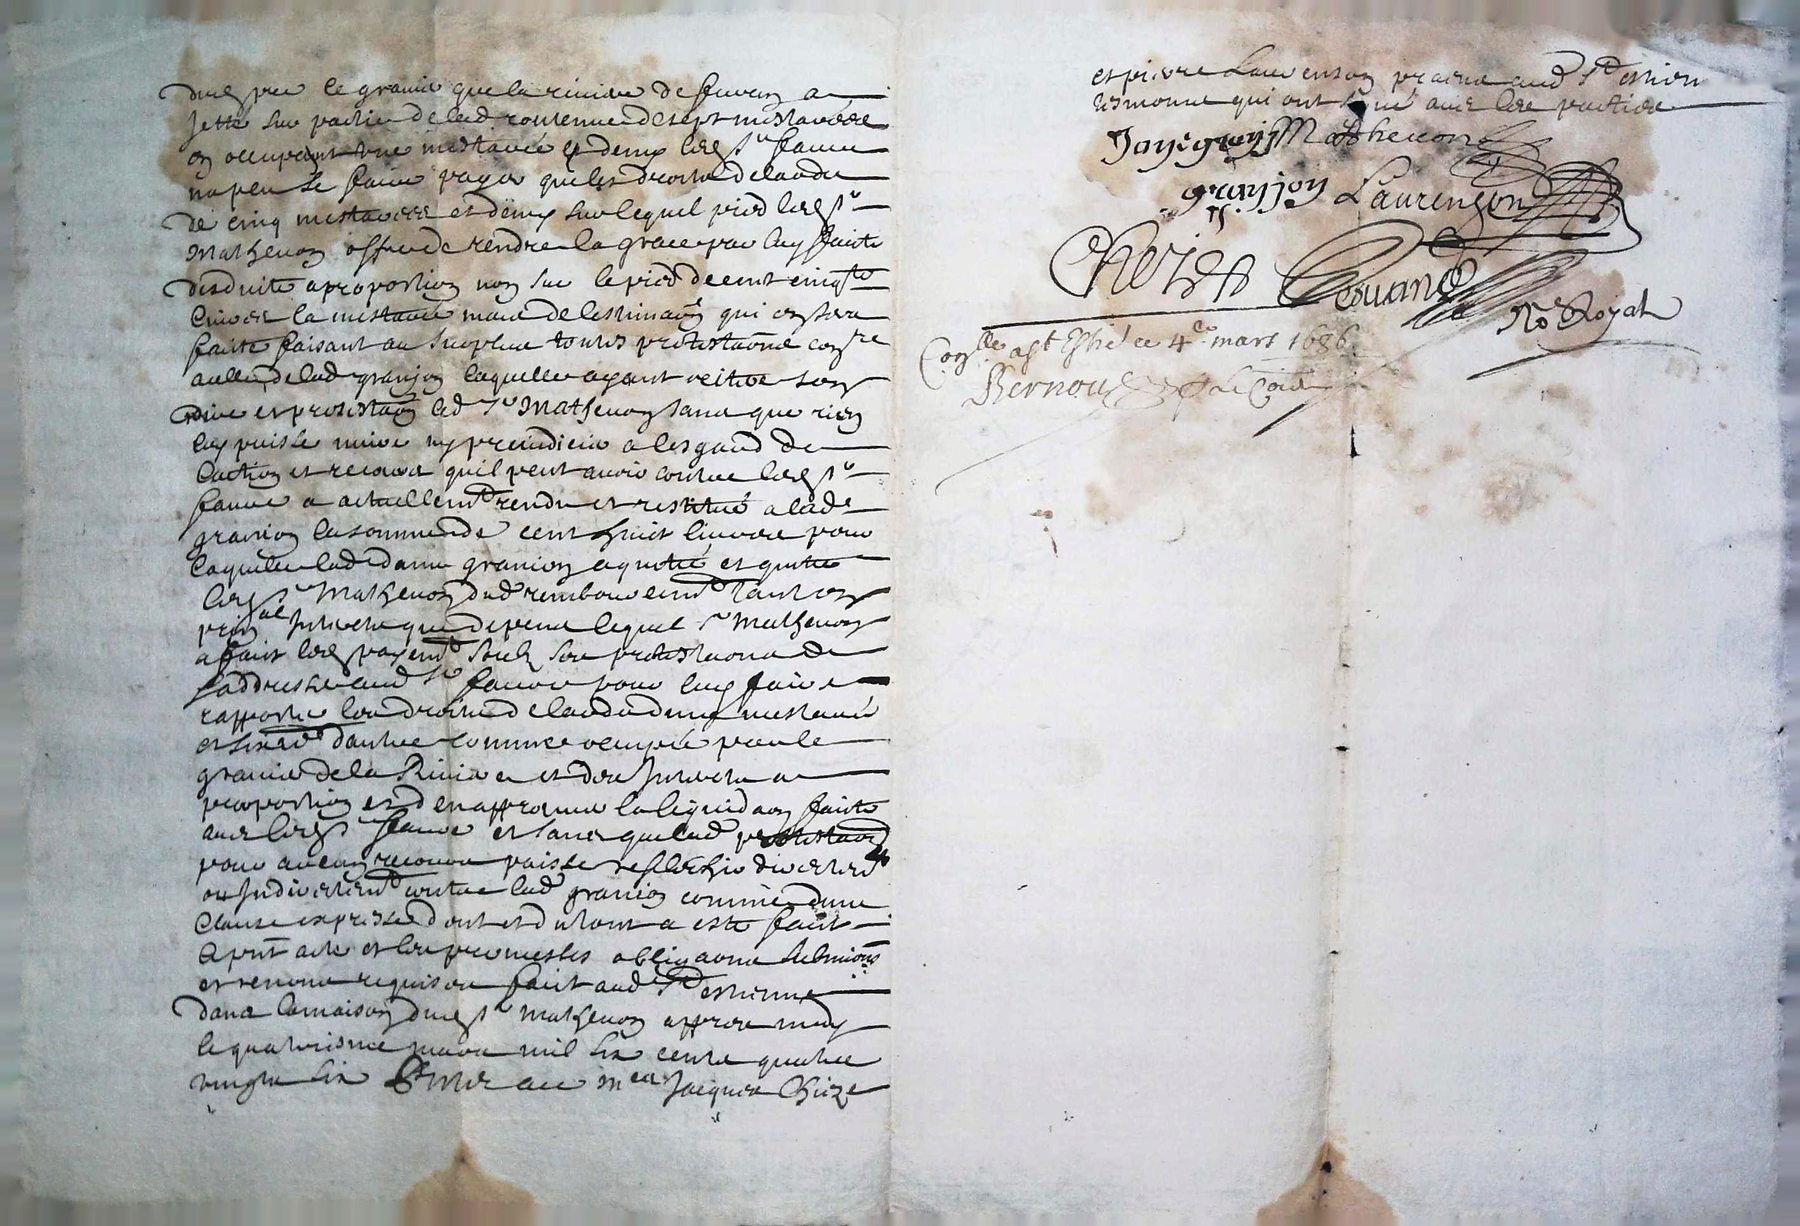 dud pré le gravier que la riviere de furan a
jetté sur partie de lad contenue de sept mestairées
en occupant une mestairée et demy led sr faure
na peu se faire payer que les droits de laods
de cinq mestairées et demy sur lequel pied led sr
Mathevon offre de rendre la grace par luy faicte
desduite a proportion non sur le pied de cent cinqte
livres la mestairée mais de lestimaon qui en sera
faite faisant au surplus toutes protestaons contre
celles de lad granjon laquelle ayant reiteré son
dire et protestaon led sr Mathevon sans que rien
luy puisse nuire ny preiudicier a lesgard de
laction et recours quil peut avoir contre led sr
faure a actuellemt rendu et restitué a lade
granion la somme de cent huict livres pour
laquelle lad dame granion a quitté et quitte
led sr Mathevon dud remboursemt tant en
prinal interestz que despens lequel sr Mathevon
a faict led payemt soubz ses protestaons de
saddresser aud sr faure pour luy faire
rapporter les droits de laods dune mestairée
et sixie dautre comme occupée par le
gravier de la Riviere et des interestz a
proportion et den approuver la liquidaon faite
avec led sr faure et sans que lad protestaon
pour aucun recours puisse reflechir directemt
ou indirectemt contre lad granion comme dune
clause expresse dont et du tout a esté faict
le pnt acte et les promesses obligaons submions
et renons requises faict aud St estienne
dans la maison dud sr Mathevon appres midy
le quatriesme mars mil six cents quatre
vingts six Pnts a ce Mes Jacques Chieze
et pierre Laurenson pratns aud St estien
tesmoins qui ont signé avec les parties
Jayégronj Mathevon
granjon Laurenson
Chieze
No Royal
Conlle a St Esne ce 4e mars 1686
Bernou